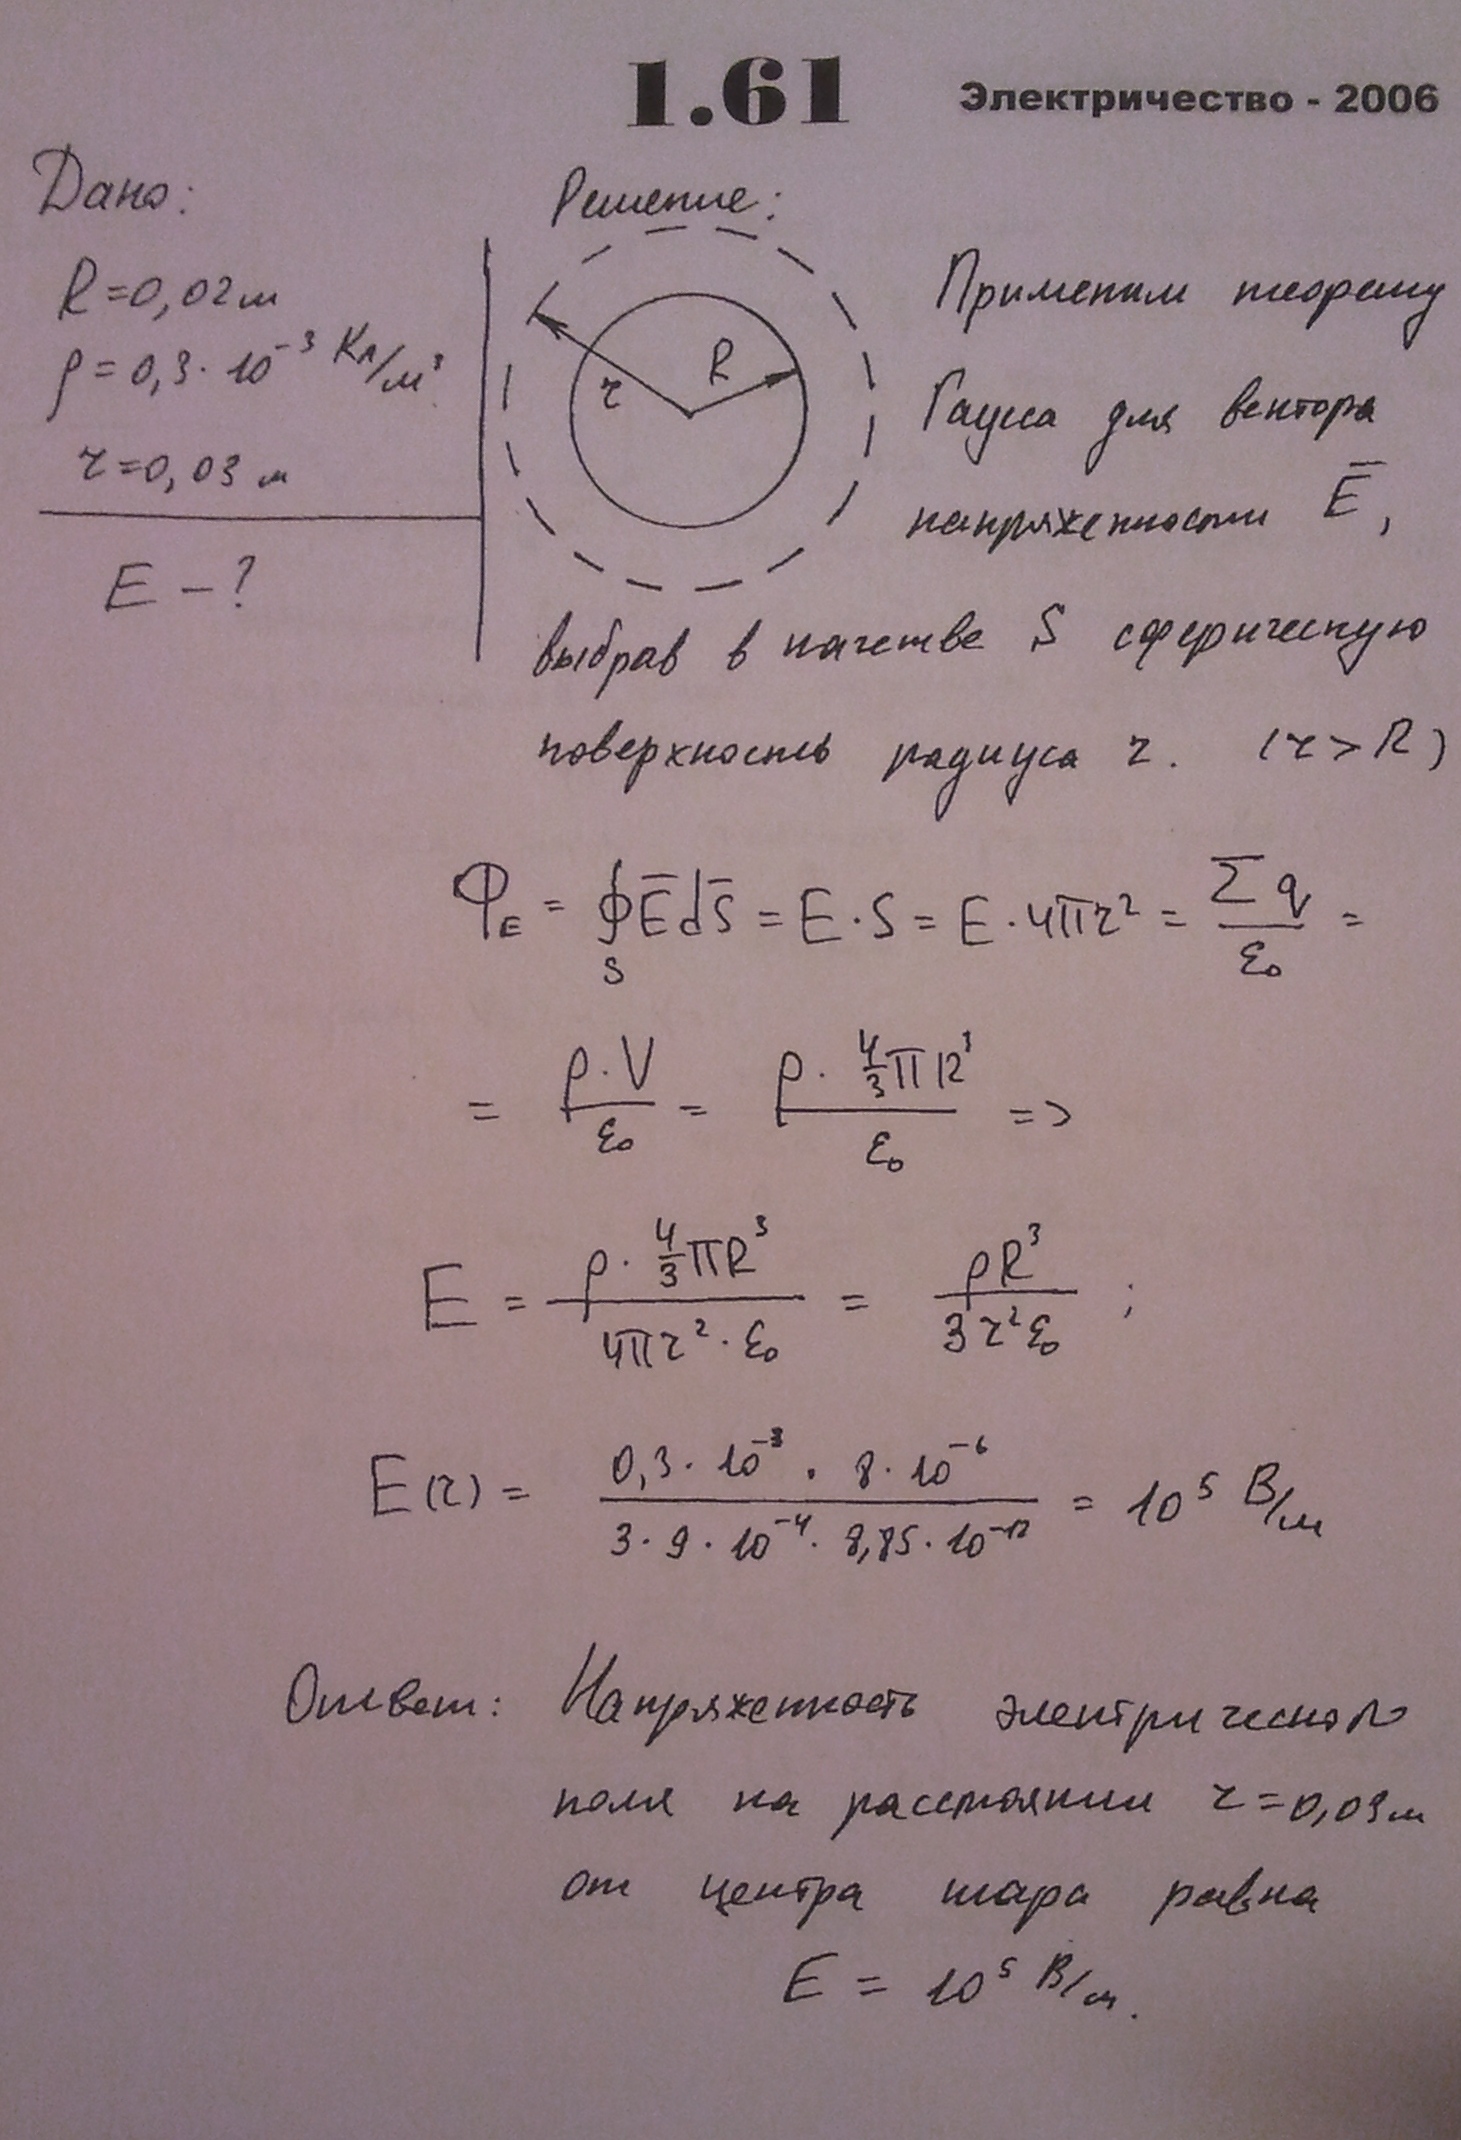 1.61 Электричество - 2006
Дано:
R=0,02 м
ρ=0,3·10⁻³ Кл/м³
r=0,03 м
E - ?
Решение:
R r
Применим теорему
Гаусса для вектора
напряженности E̅,
выбрав в качестве S сферическую
поверхность радиуса r. (r>R)
Φ_E = ∮_S E̅dS̅ = E·S = E·4πr² = Σq/ε₀ =
= ρ·V/ε₀ = ρ·4/3πR³/ε₀ =>
E = ρ·4/3πR³/4πr²·ε₀ = ρR³/3r²ε₀ ;
E(r) = 0,3·10⁻³·8·10⁻⁶/3·9·10⁻⁴·8,85·10⁻¹² = 10⁵ В/м
Ответ: Напряженность электрической
поля на расстоянии r=0,03м
от центра шара равна
E = 10⁵ В/м.